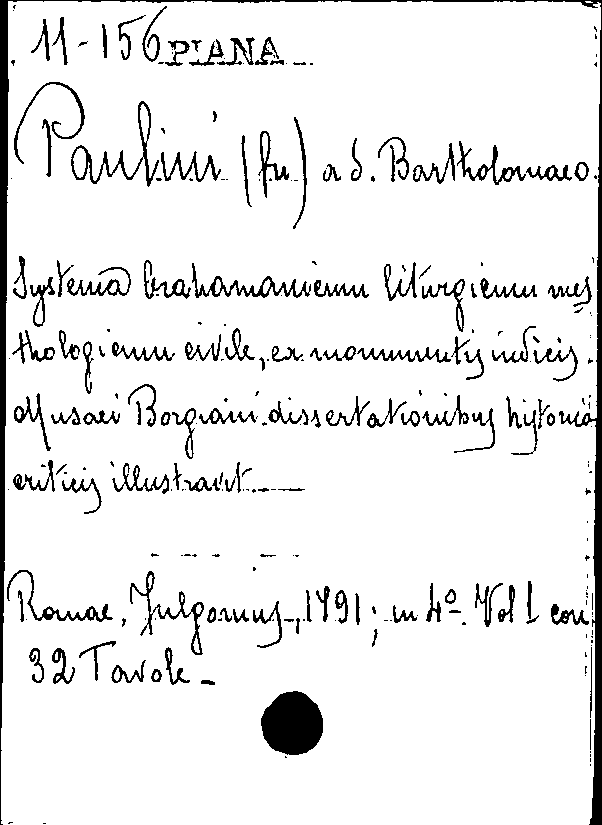 11-156 PIANA
Paulini (fu) a S. Bartholomaeo.
Systema brahamanicum liturgicum mes
thologicum civile, ex monumentis indicis.
Musaei Borgiani dissertationibus historia
criticis illustravit.
Romae, Fulgonius, 1791; in 4º. Vol 1 con
32 Tavole -